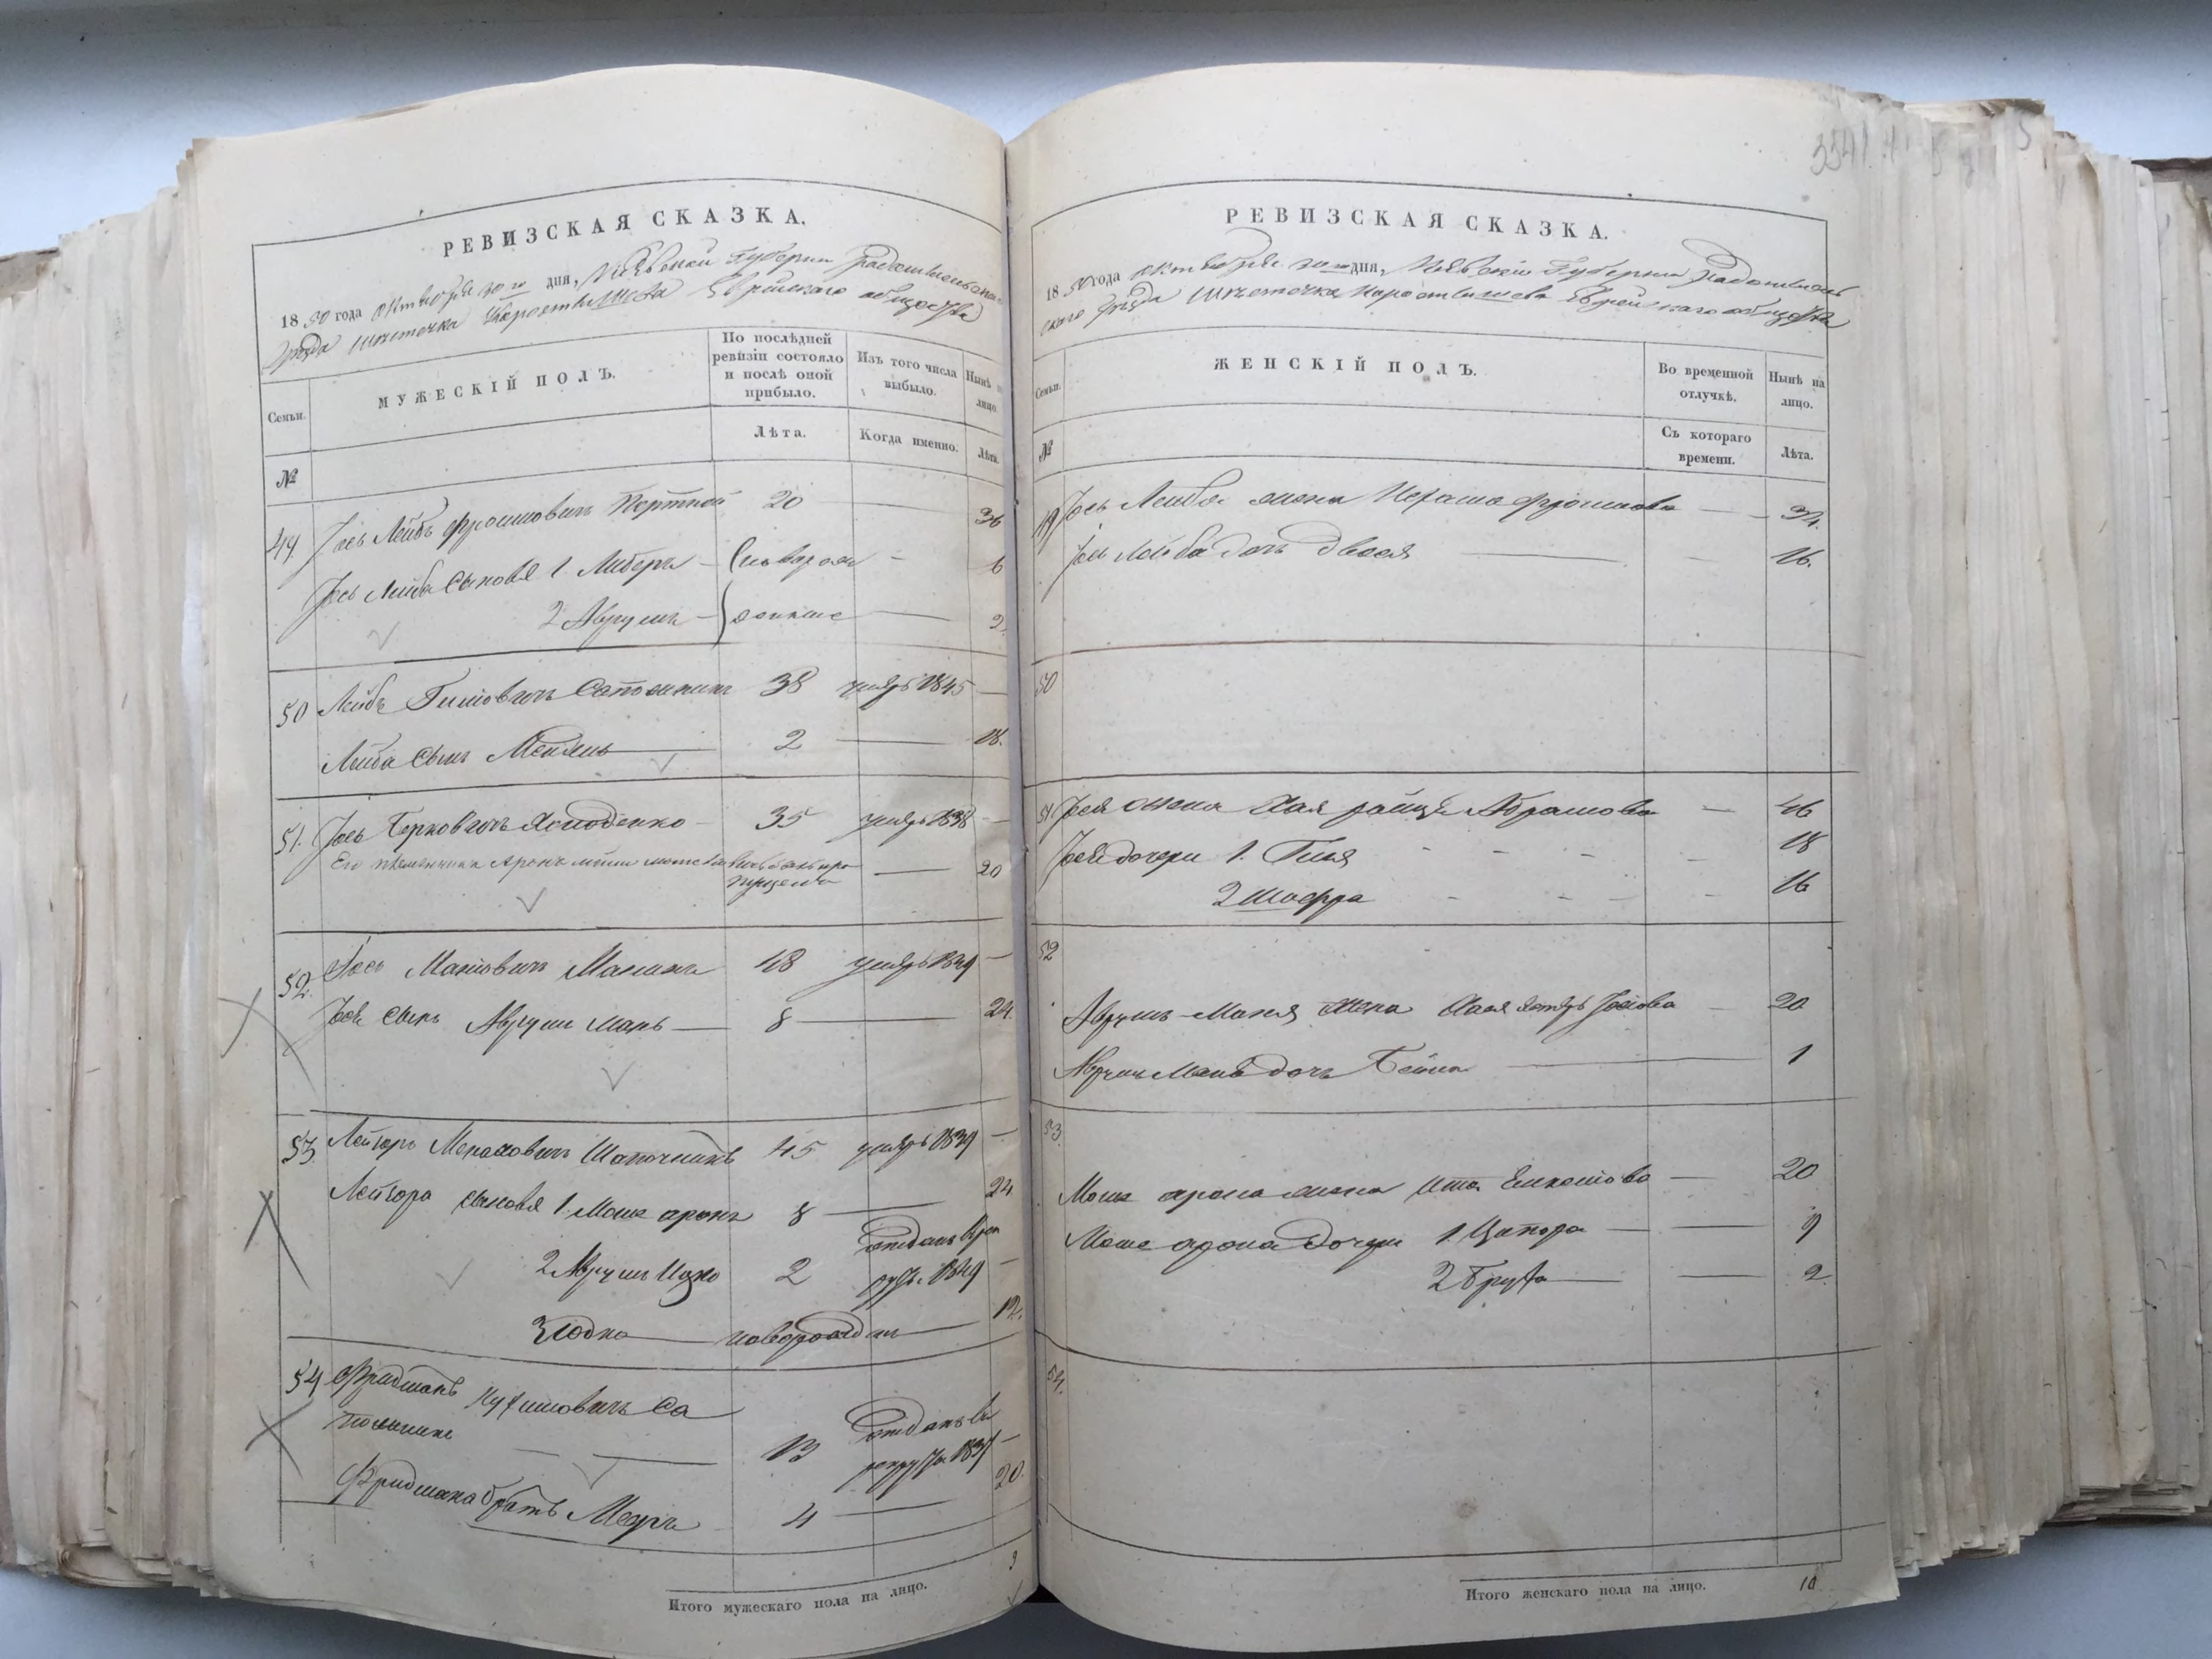 РЕВИЗСКАЯ СКАЗКА.
18 50 года октября 30 го дня, Кіевской Губерніи Радомысльскаго
уѣзда мѣстечка Коростышева Еврейскаго общества
Семьи.
МУЖЕСКІЙ ПОЛЪ.
По послѣдней ревизіи состояло и послѣ оной прибыло.
Изъ того числа выбыло.
Нынѣ на лицо.
№
Лѣта.
Когда именно.
Лѣта.
49 Іось Лейбъ Фроимовичъ Портной 20 — 36
Іось Лейба сыновья 1. Либеръ — новорож — 6
2 Аврумъ — денные — 2.
50 Лейбъ Сапожникъ 38 умеръ 1845 —
Лейба сынъ Мендель — 2 — 18.
51. Іось Берковичъ 35 умеръ 1838 —
Его племянникъ Аронъ — 20
52. Іось Маниовичъ 48 умеръ 1839 —
Іося сынъ Аврумъ Мань — 8 — 24.
53. Лейзоръ Шапочникъ 45 умеръ 1839 —
Лейзора сыновья 1. Моше Аронъ 8 — 24
2 Аврумъ Ицко 2 отданъ рекр. 1849 —
3 Юдко — новорожден — 12.
54 Фридманъ Са
пожникъ — — 13 отданъ въ рекруты 1837 —
Фридмана братъ Мееръ 4 — 20.
Итого мужескаго пола на лицо. 9
3541
РЕВИЗСКАЯ СКАЗКА.
18 50 года октября 30 дня, Кіевской Губерніи Радомысль
скаго уѣзда мѣстечка Коростышева Еврейскаго общества
Семьи.
ЖЕНСКІЙ ПОЛЪ.
Во временной отлучкѣ.
Нынѣ на лицо.
№
Съ котораго времени.
Лѣта.
49 Іось Лейба жена Фроимова — 34.
Іось Лейба дочь Двося — 16.
50
51 Іося жена Хая Абрамова — 46
Іося дочери 1. Гитя - - - 18
2 Шифра - - - 16
52
Аврумъ Маня жена Хая Іосіова — 20
Аврумъ Маня дочь Бейла — 1
53.
Моше Арона жена Ита — 20
Моше Арона дочери 1. Ципора — 9
2 Бруха — 2.
54.
Итого женскаго пола на лицо. 10